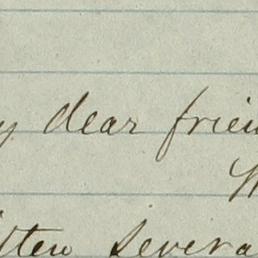 y dear frien
itten severa